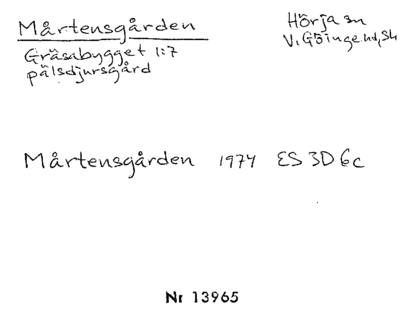 Mårtensgården
Gräsabygget 1:7
pälsdjursgård
Hörja sn
V. Göinge hd, Sk
Mårtensgården 1974 ES 3D 6c
Nr 13965